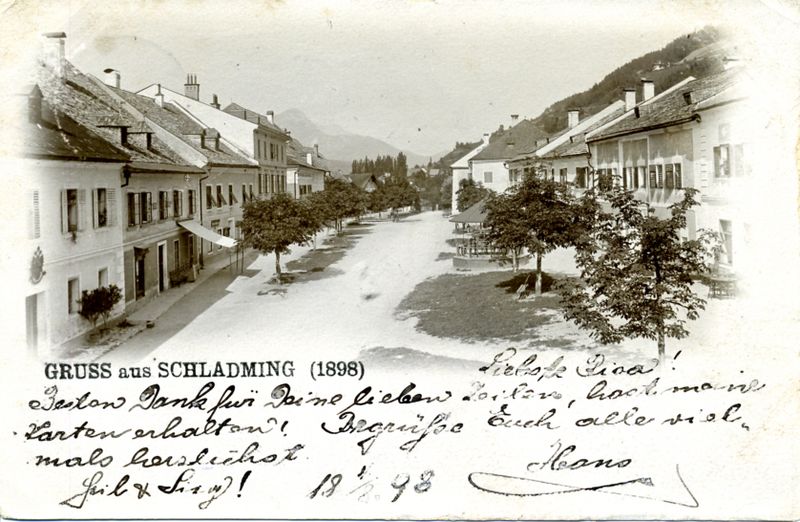 GRUSS aus SCHLADMING (1898)
Liebste Disa!
Besten Dank für Deine lieben Zeilen, hast meine
Karten erhalten! Begrüße Euch alle viel-
mals herzlichst.
Hans
Heil & Sieg! 18 1/8 98